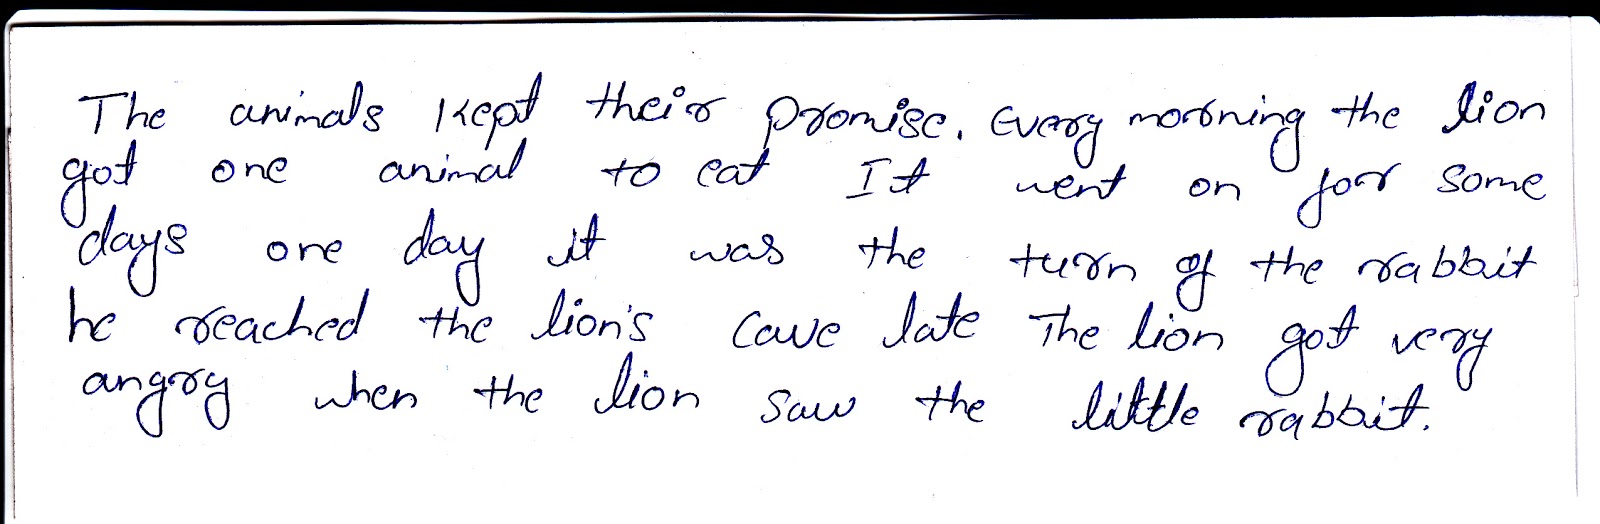 The animals kept their promise. Every morning the lion
got one animal to eat It went on for some
days one day it was the turn of the rabbit
he reached the lion's cave late The lion got very
angry when the lion saw the little rabbit.